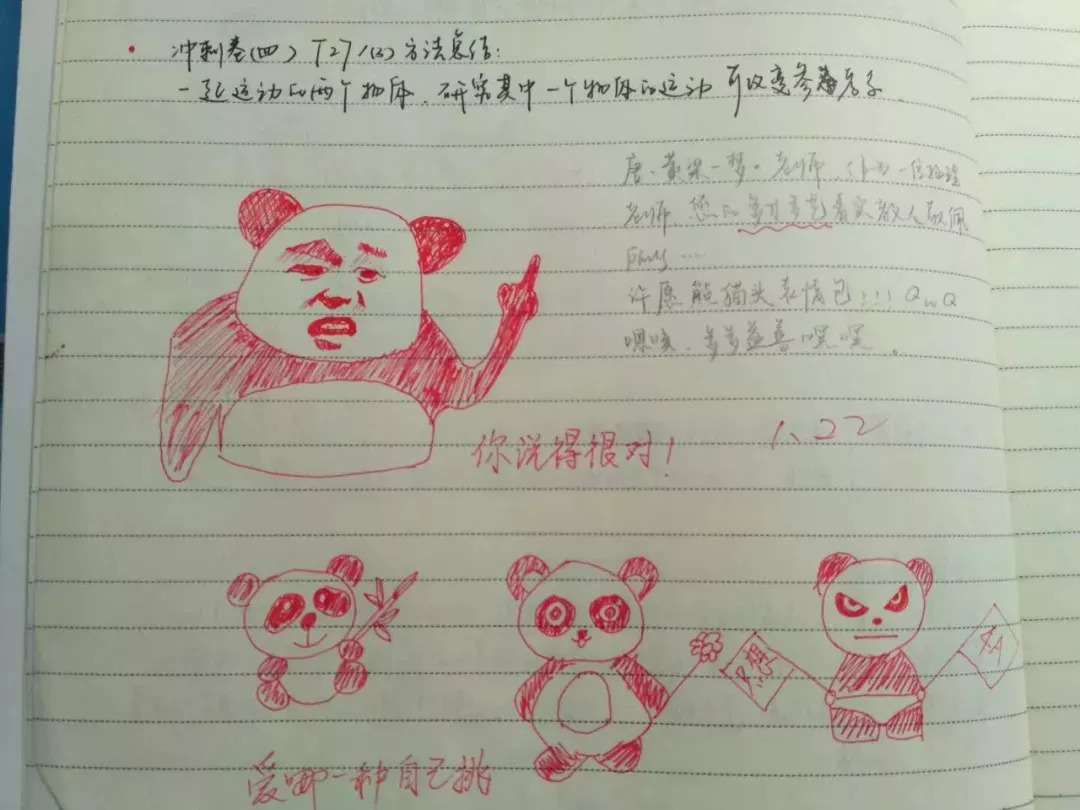 冲刺卷(四) T27/(2)方法总结:
一起运动的两个物体.研究其中一个物体的运动 可改变参考系
唐·黄粱一梦·老师、作为一位物理
老师、您的多才多艺着实教人敬佩
许愿熊猫头表情包!!! QwQ
嘿咳、多多益善嘿嘿.
你说得很对!
1、22
爱哪一种自己挑